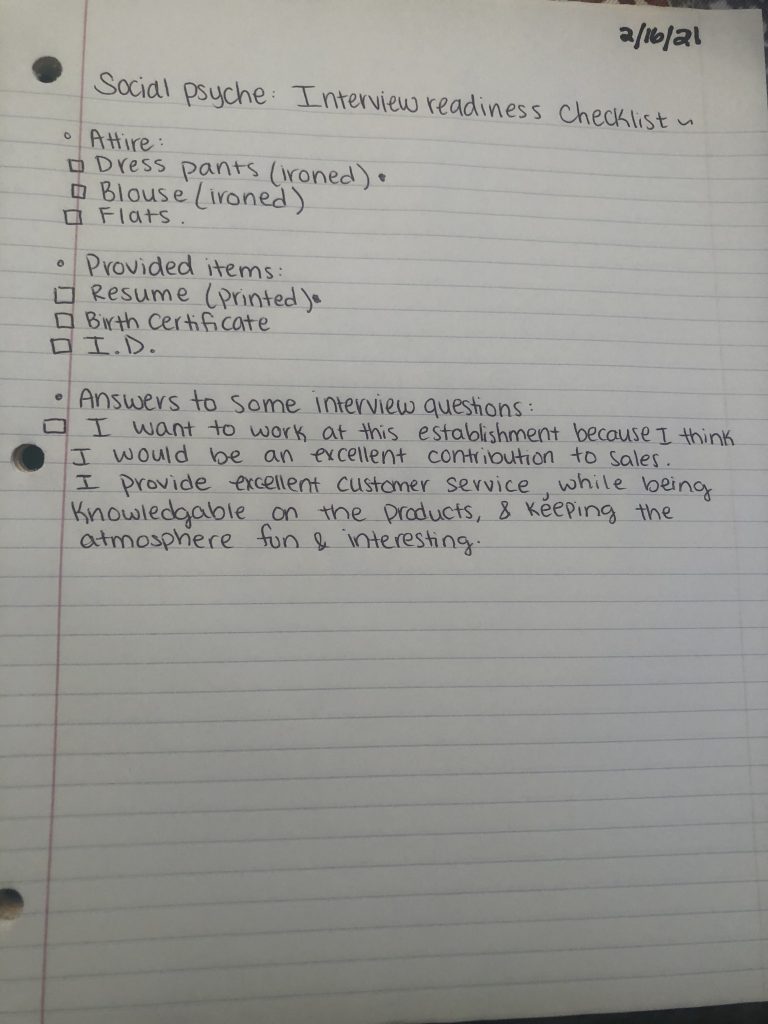 2/16/21
Social psyche: Interview readiness checklist ~
◦ Attire:
☐ Dress pants (ironed).
☐ Blouse (ironed)
☐ Flats.
◦ Provided items:
☐ Resume (printed).
☐ Birth certificate
☐ I.D.
• Answers to some interview questions:
☐ I want to work at this establishment because I think
I would be an excellent contribution to sales.
I provide excellent customer service, while being
knowledgable on the products, & keeping the
atmosphere fun & interesting.